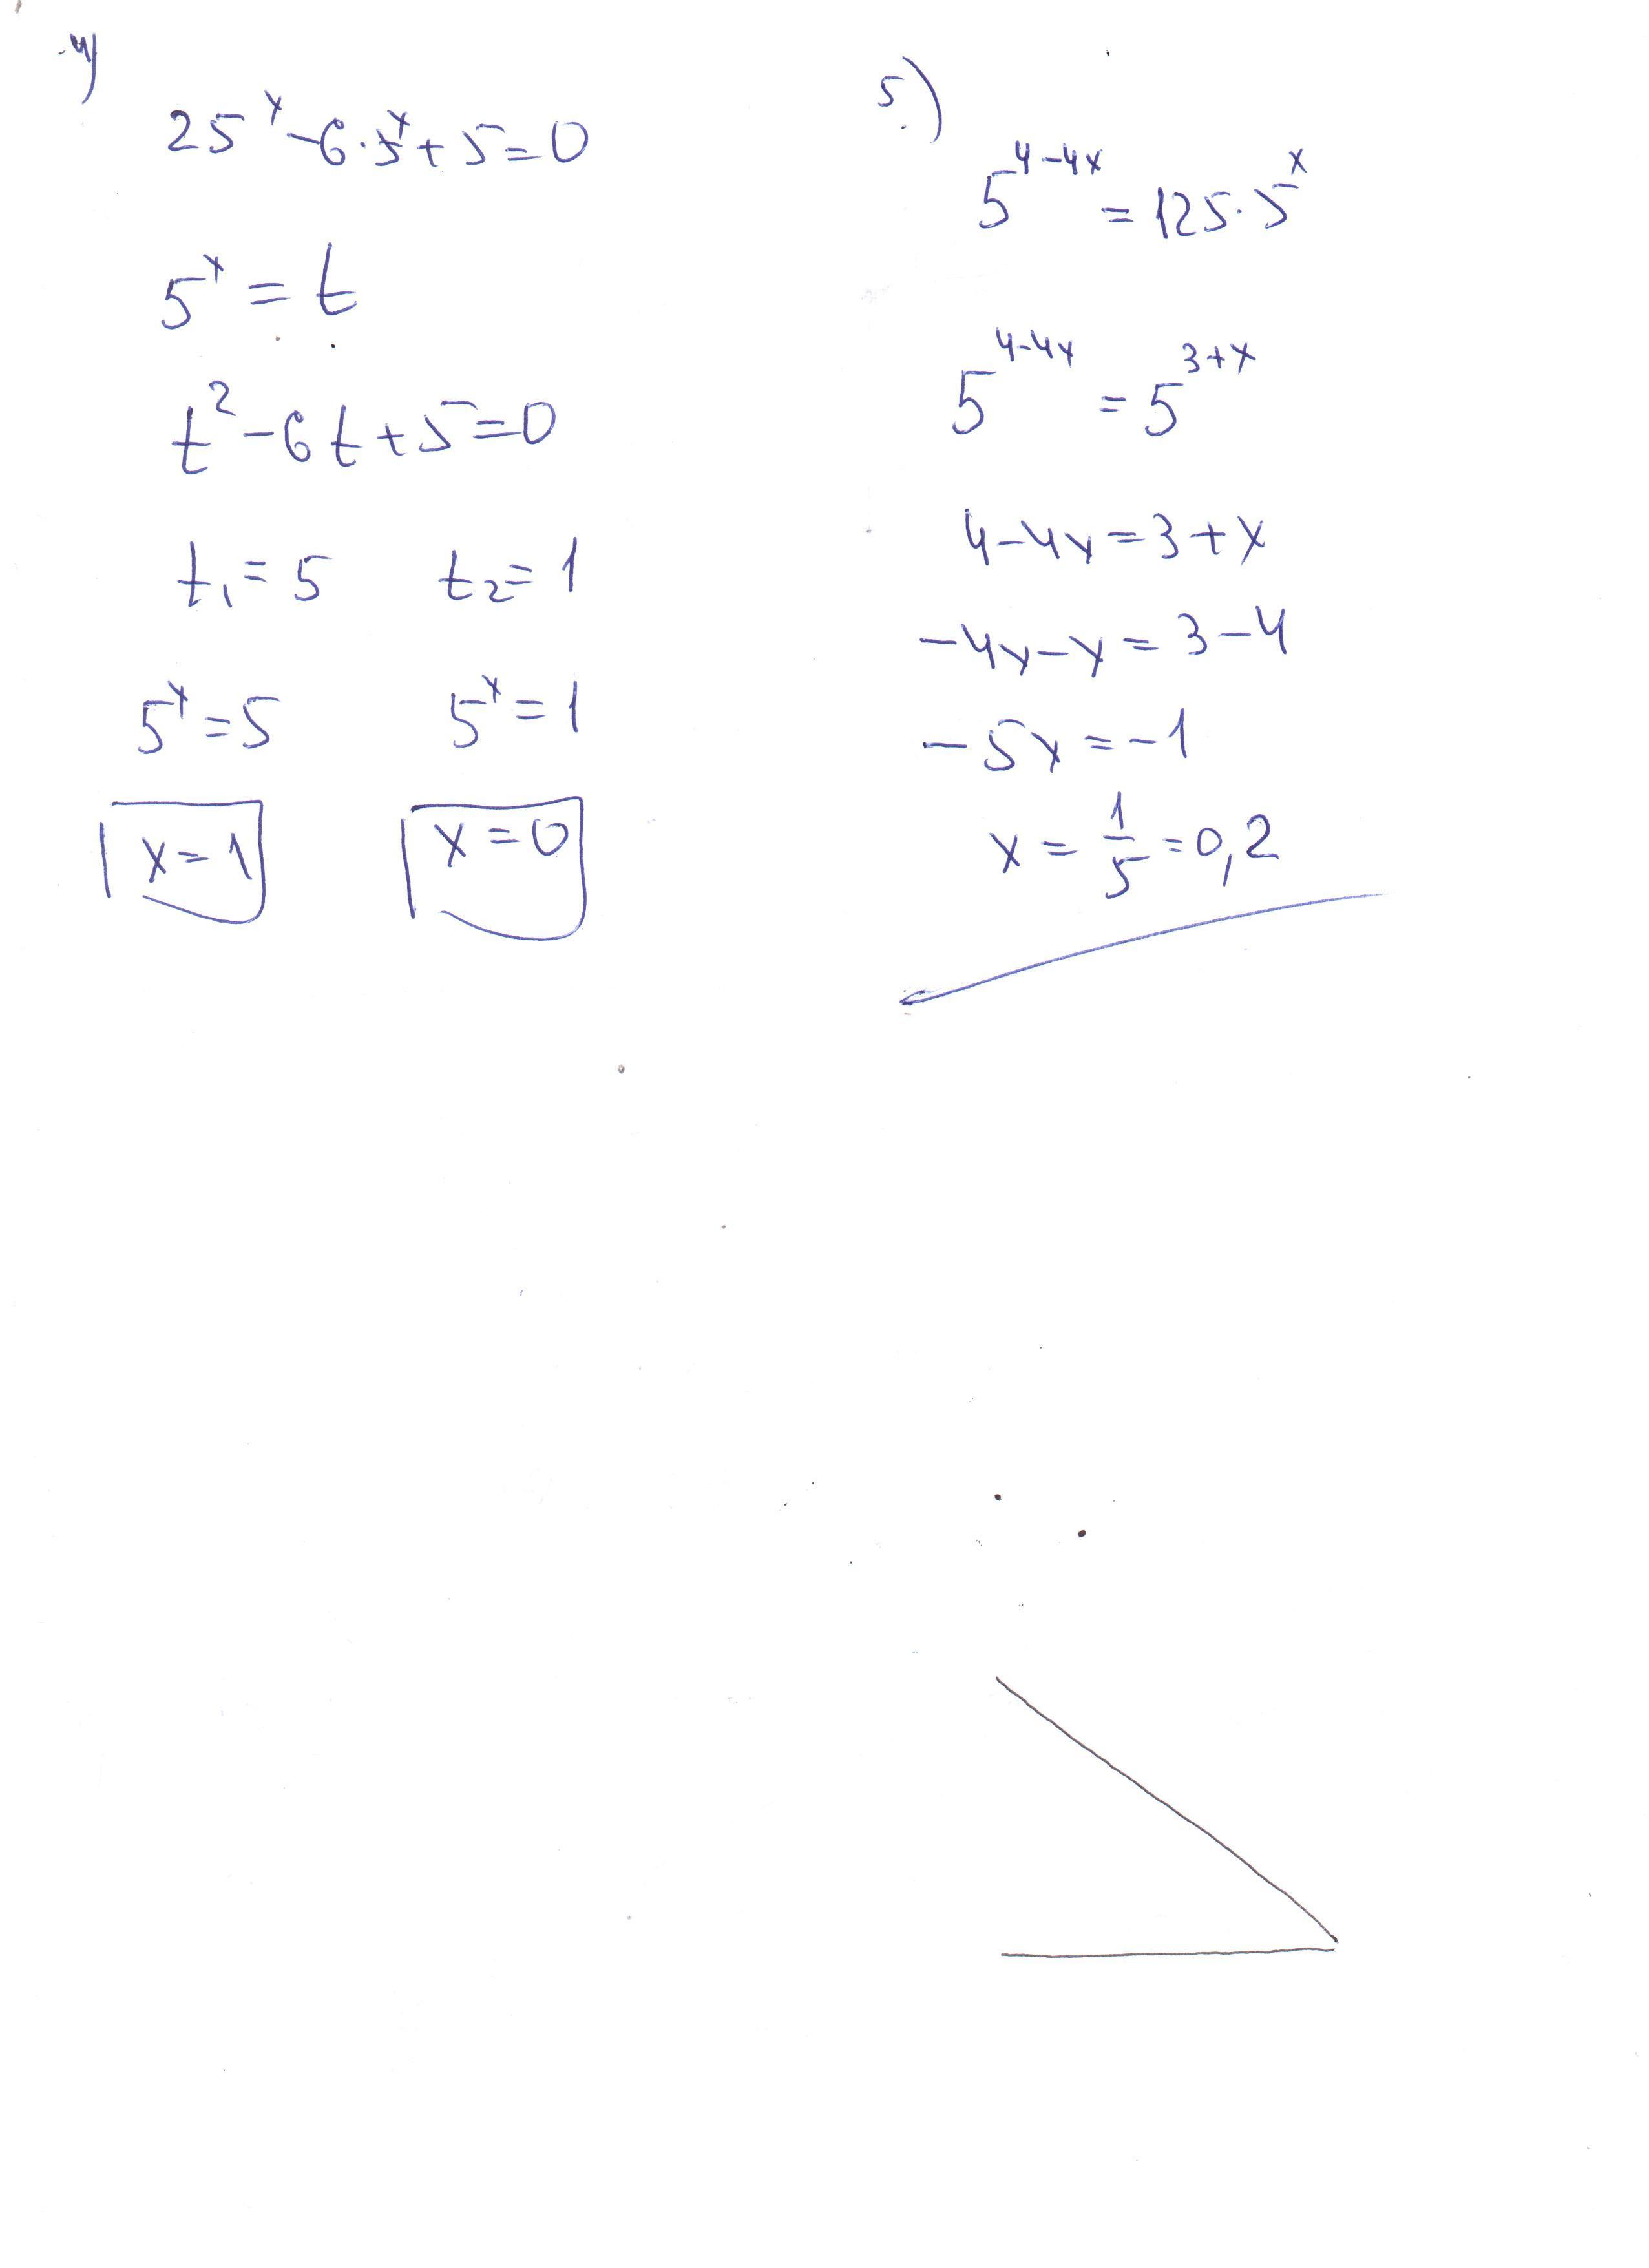 4)
25^x - 6·5^x + 5 = 0
5^x = t
t² - 6t + 5 = 0
t₁ = 5    t₂ = 1
5^x = 5    5^x = 1
x = 1    x = 0
5)
5^(4-4x) = 125·5^x
5^(4-4x) = 5^(3+x)
4 - 4x = 3 + x
-4x - x = 3 - 4
-5x = -1
x = 1/5 = 0,2